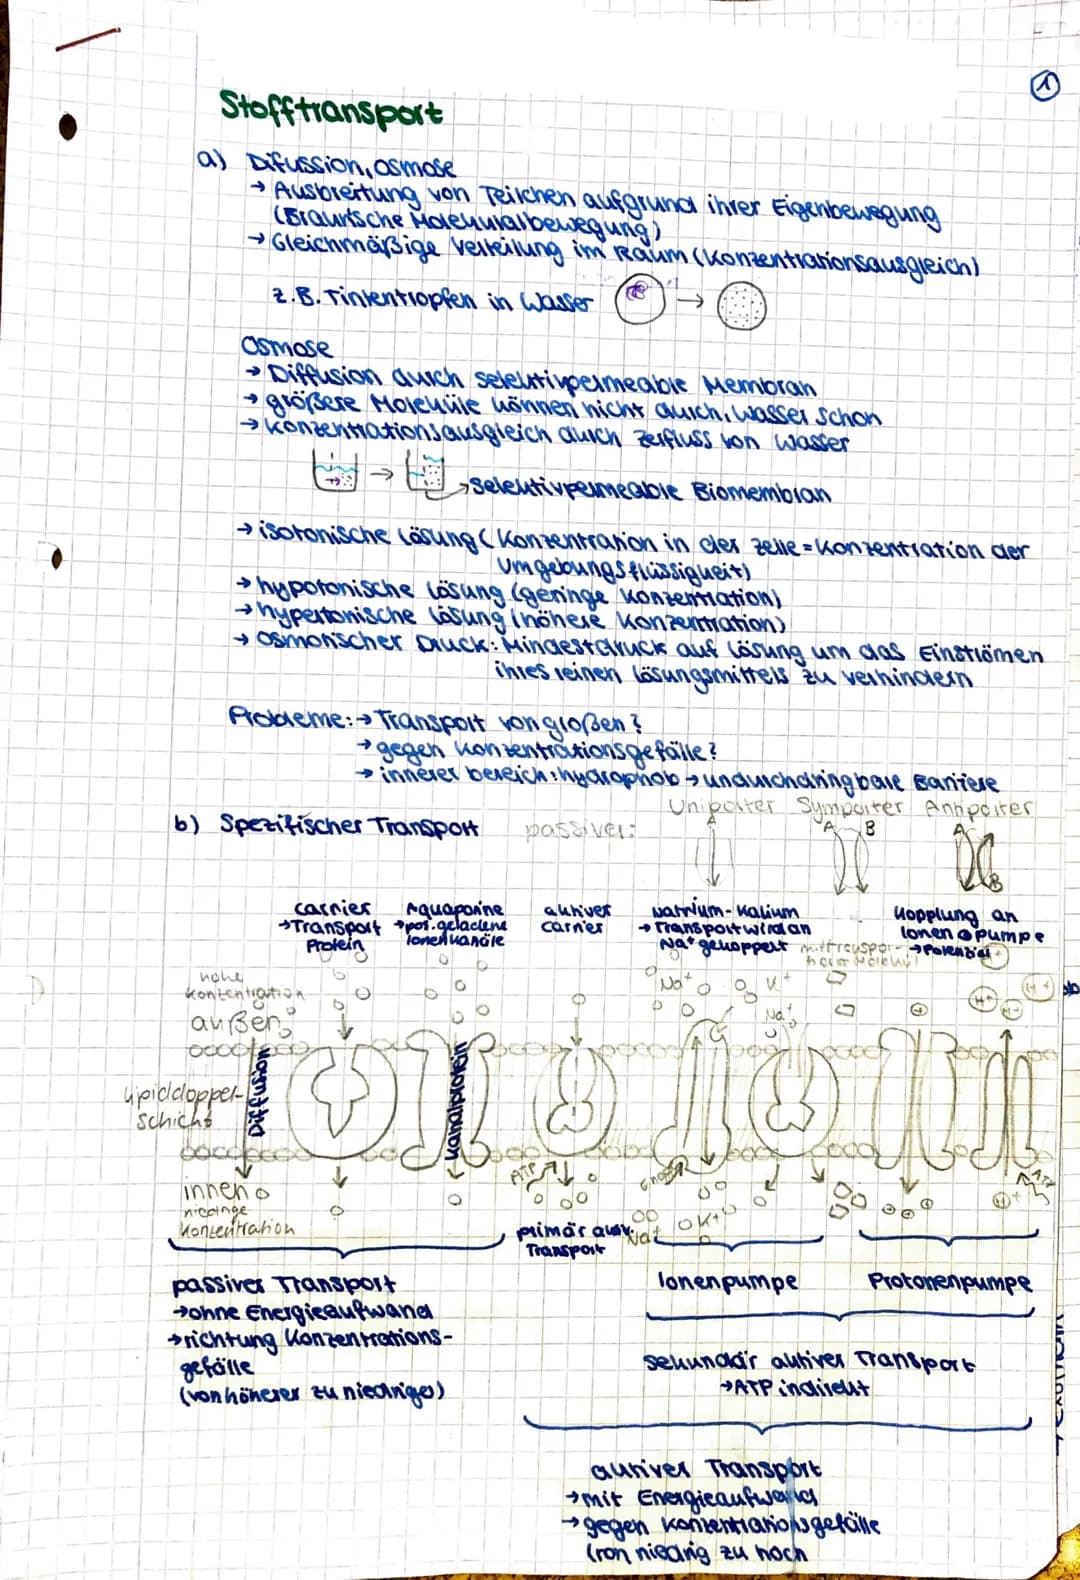 1
Stofftransport
a) Difussion, Osmose
→ Ausbreitung von Teilchen aufgrund ihrer Eigenbewegung
(Braun'sche Molekularbewegung)
→ Gleichmäßige Verteilung im Raum (Konzentrationsausgleich)
z.B. Tintentropfen in Wasser →
Osmose
→ Diffusion durch selektivpermeable Membran
→ größere Moleküle können nicht durch, Wasser schon
→ Konzentrationsausgleich durch Zerfluss von Wasser
→ → selektivpermeable Biomembran
→ isotonische Lösung (Konzentration in der Zelle = Konzentration der
Umgebungsflüssigkeit)
→ hypotonische Lösung (geringe Konzentration)
→ hypertonische Lösung (höhere Konzentration)
→ Osmotischer Druck: Mindestdruck auf Lösung um das Einströmen
ihres reinen Lösungsmittels zu verhindern
Probleme: → Transport von großen?
→ gegen Konzentrationsgefälle?
→ innerer bereich: hydrophob → undurchdringbare Barriere
Uniporter Symporter Antiporter
b) Spezifischer Transport passiver:
A A B A B
carrier Aquaporine aktiver Natrium-Kalium Kopplung an
→ Transport → pos. geladene carrier → Transport wird an Ionen pumpe
Protein Ionenkanäle Na⁺ gekoppelt → Potenzial
hohe
Konzentration Na⁺ K⁺ H⁺ H⁺ H⁺
außen Na⁺
Lipiddoppel- Diffusion Kanalprotein
schicht
innen ATP ATP
niedrige H⁺
Konzentration primär aktiv. Na⁺ K⁺
Transport
passiver Transport Ionenpumpe Protonenpumpe
→ ohne Energieaufwand
→ richtung Konzentrations-
gefälle sekundär aktiver Transport
(von höherer zu niedriger) → ATP indirekt
aktiver Transport
→ mit Energieaufwand
→ gegen Konzentrationsgefälle
(von niedrig zu hoch